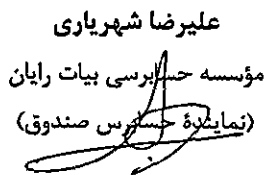 علیرضا شهریاری
مؤسسه حسابرسی بیات رایان
(نمایندهٔ حسابرس صندوق)